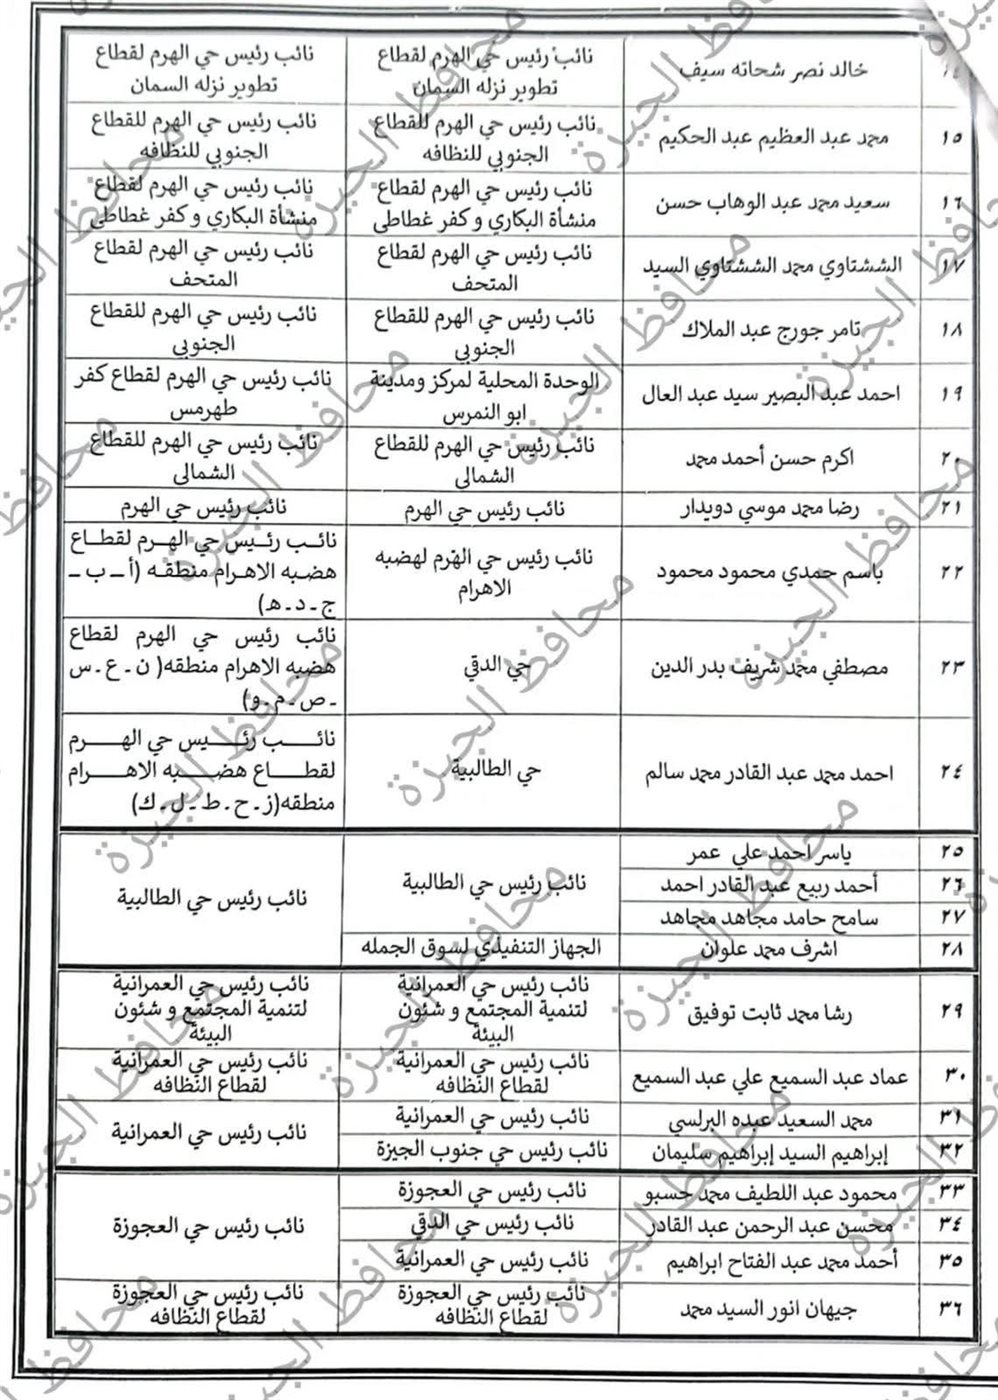 ١٤ خالد نصر شحاته سيف نائب رئيس حي الهرم لقطاع نائب رئيس حي الهرم لقطاع
تطوير نزله السمان تطوير نزله السمان
١٥ محمد عبد العظيم عبد الحكيم نائب رئيس حي الهرم للقطاع نائب رئيس حي الهرم للقطاع
الجنوبي للنظافه الجنوبي للنظافه
١٦ سعيد محمد عبد الوهاب حسن نائب رئيس حي الهرم لقطاع نائب رئيس حي الهرم لقطاع
منشأة البكاري و كفر غطاطى منشأة البكاري و كفر غطاطى
١٧ الششتاوي محمد الششتاوي السيد نائب رئيس حي الهرم لقطاع نائب رئيس حي الهرم لقطاع
المتحف المتحف
١٨ تامر جورج عبد الملاك نائب رئيس حي الهرم للقطاع نائب رئيس حي الهرم للقطاع
الجنوبي الجنوبي
١٩ احمد عبد البصير سيد عبد العال الوحدة المحلية لمركز ومدينة نائب رئيس حي الهرم لقطاع كفر
ابو النمرس طهرمس
٢٠ اكرم حسن أحمد محمد نائب رئيس حي الهرم للقطاع نائب رئيس حي الهرم للقطاع
الشمالى الشمالى
٢١ رضا محمد موسي دويدار نائب رئيس حي الهرم نائب رئيس حي الهرم
٢٢ باسم حمدي محمود محمود نائب رئيس حي الهرم لهضبه نائب رئيس حي الهرم لقطاع
الاهرام هضبه الاهرام منطقه (أ - ب -
ج - د - هـ)
٢٣ مصطفي محمد شريف بدر الدين حي الدقي نائب رئيس حي الهرم لقطاع
هضبه الاهرام منطقه( ن - ع - س
- ص - م - و)
٢٤ احمد محمد عبد القادر محمد سالم حي الطالبية نائب رئيس حي الهرم
لقطاع هضبه الاهرام
منطقه(ز - ح - ط - ل - ك)
٢٥ ياسر احمد علي عمر نائب رئيس حي الطالبية نائب رئيس حي الطالبية
٢٦ أحمد ربيع عبد القادر احمد
٢٧ سامح حامد مجاهد مجاهد
٢٨ اشرف محمد علوان الجهاز التنفيذي لسوق الجمله
٢٩ رشا محمد ثابت توفيق نائب رئيس حي العمرانية نائب رئيس حي العمرانية
لتنمية المجتمع و شئون لتنمية المجتمع و شئون
البيئة البيئة
٣٠ عماد عبد السميع علي عبد السميع نائب رئيس حي العمرانية نائب رئيس حي العمرانية
لقطاع النظافه لقطاع النظافه
٣١ محمد السعيد عبده البرلسي نائب رئيس حي العمرانية نائب رئيس حي العمرانية
٣٢ إبراهيم السيد إبراهيم سليمان نائب رئيس حي جنوب الجيزة
٣٣ محمود عبد اللطيف محمد حسبو نائب رئيس حي العجوزة نائب رئيس حي العجوزة
٣٤ محسن عبد الرحمن عبد القادر نائب رئيس حي الدقي
٣٥ أحمد محمد عبد الفتاح ابراهيم نائب رئيس حي العمرانية
٣٦ جيهان انور السيد محمد نائب رئيس حي العجوزة نائب رئيس حي العجوزة
لقطاع النظافه لقطاع النظافه
محافظ الجيزة